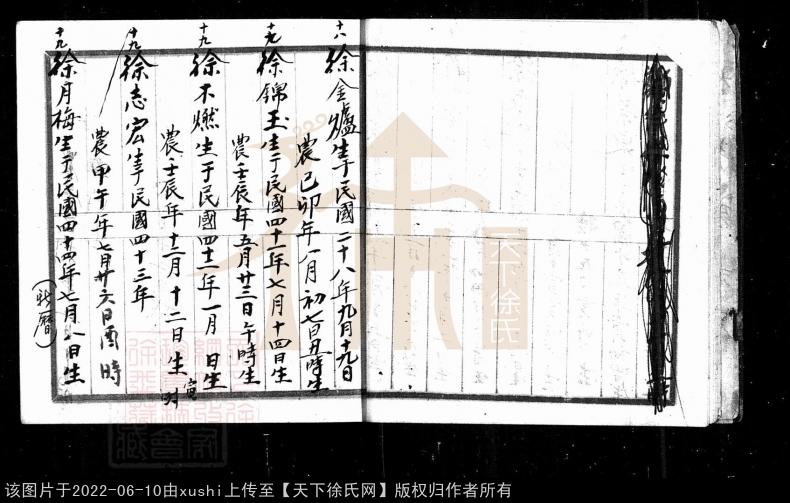 十八 徐金爐生于民國二十八年九月十九日
農己卯年八月初七日丑時生
十九 徐錦玉生于民國四十一年七月十四日生
農壬辰年五月廿三日午時生
十九 徐木燃生于民國四十二年一月 日生
農壬辰年十二月十二日生
寅时
十九 徐志宏生于民國四十三年
農甲午年七月廿六日酉時
十九 徐月梅生于民國四十四年七月八日生
(新曆)
天下徐氏
该图片于2022-06-10由xushi上传至【天下徐氏网】版权归作者所有